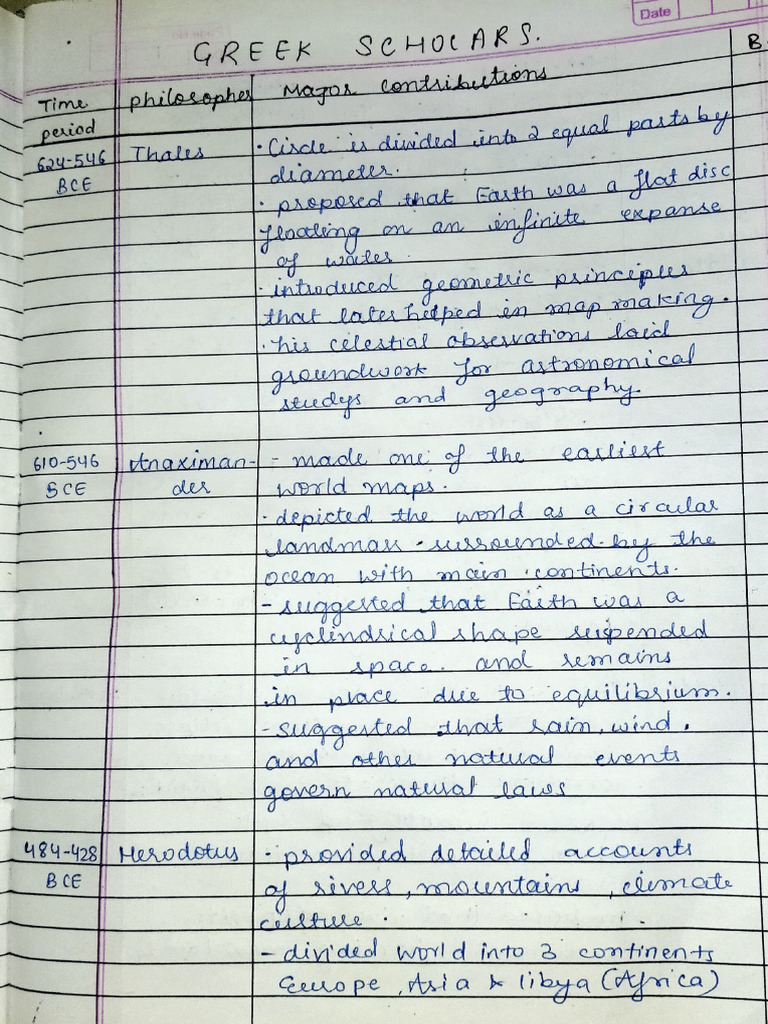 Date
GREEK SCHOLARS.
B.
Time period
philosopher
Major contributions
624-546 BCE
Thales
· Circle is divided into 2 equal parts by
diameter.
· proposed that Earth was a flat disc
floating on an infinite expanse
of water.
· introduced geometric principles
that later helped in map making.
· his celestial observations laid
groundwork for astronomical
studys and geography.
610-546 BCE
Anaximan-
der
- made one of the earliest
world maps.
· depicted the world as a circular
landmass surrounded by the
ocean with main continents.
- suggested that Earth was a
cyclindrical shape suspended
in space. and remains
in place due to equilibrium.
- suggested that rain, wind,
and other natural events
govern natural laws
484-428 BCE
Herodotus
- provided detailed accounts
of rivers, mountains, climate
culture.
- divided world into 3 continents
Europe, Asia & libya (Africa)